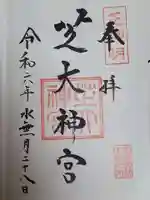 奉拝
芝大神宮
令和六年水無月二十八日